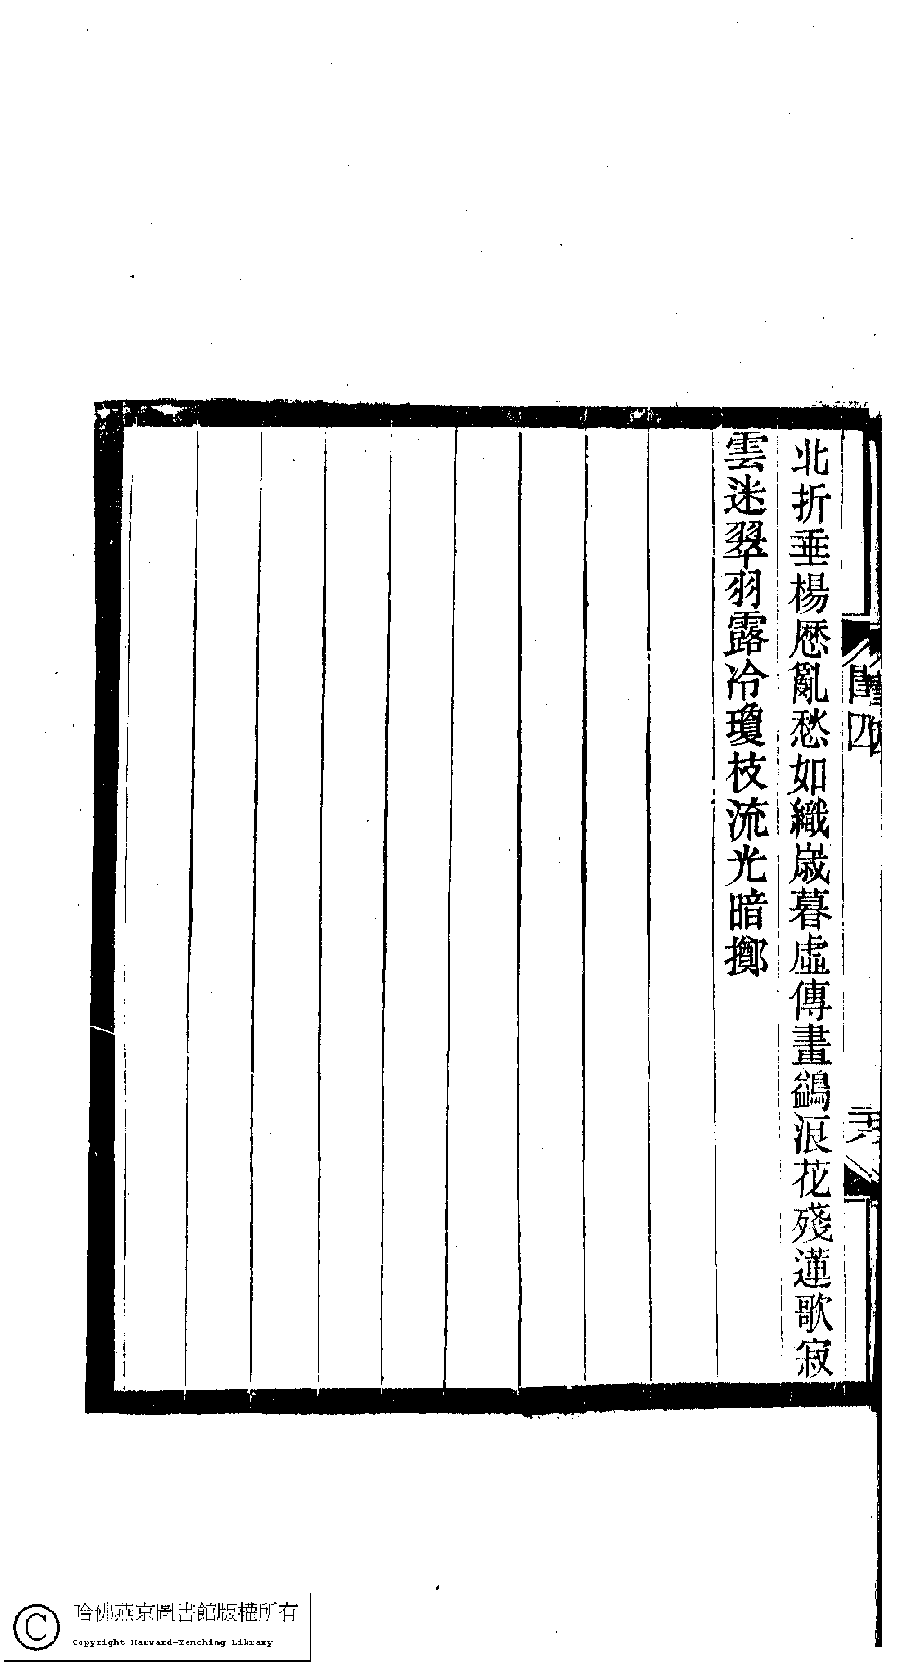 北折垂楊歴亂愁如織歲暮虛傳畫鷁浪花殘蓮歌寂
雲迷翠羽露冷瓊枝流光暗擲
四
哈佛燕京圖書館版權所有
Copyright Harvard-Yenching Library